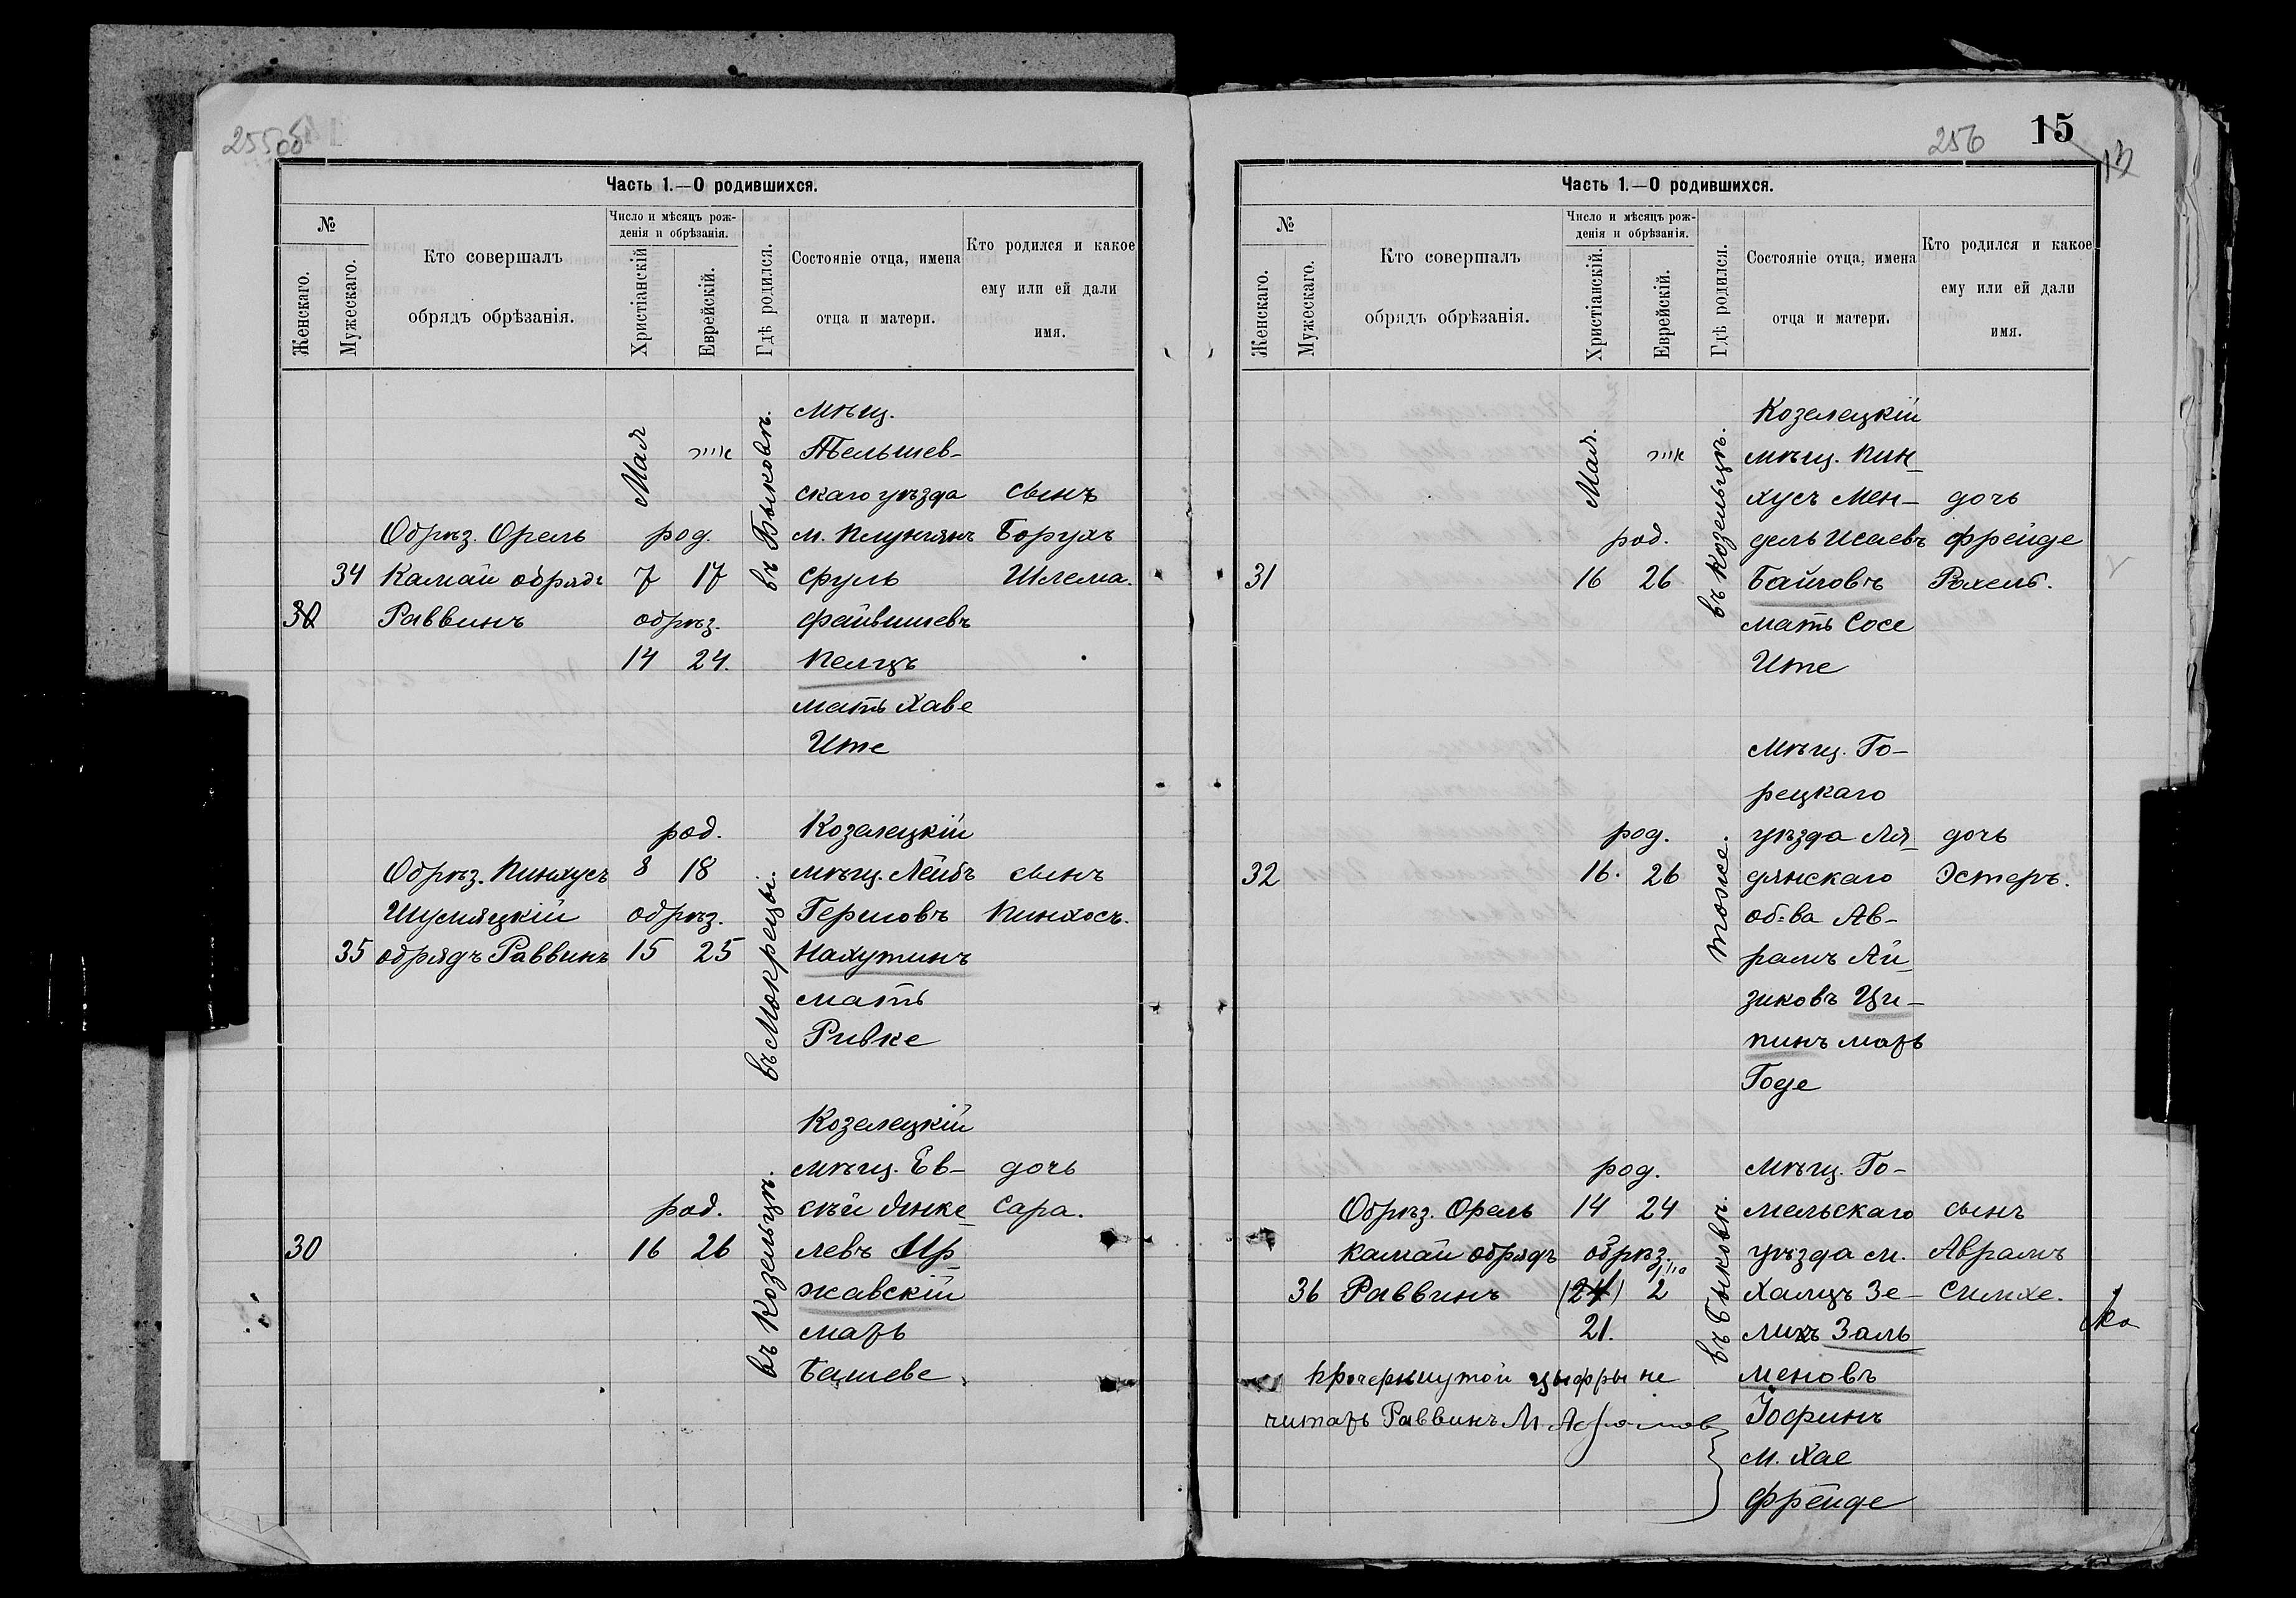 255
Часть 1.—О родившихся.
№
Женскаго.
Мужескаго.
Кто совершалъ
обрядъ обрѣзанія.
Число и мѣсяцъ рож-
денія и обрѣзанія.
Христіанскій
Еврейскій.
Гдѣ родился.
Состояніе отца, имена
отца и матери.
Кто родился и какое
ему или ей дали
имя.
34
30
Обрѣз. Орель
Камай обрядъ
Раввинъ
Мая
אייר
род.
7 17
обрѣз.
14 24.
въ Быковѣ.
мѣщ.
Тельшев-
скаго уѣзда
м. Плунгянъ
Сруль
Файвишевъ
Пелцъ
мать Хаве
Ите
сынъ
Борухъ
Шлема.
35
Обрѣз. Пинхусъ
Шумяцкій
обрядъ Раввинъ
род.
8 18
обрѣз.
15 25
въ Мокрецы.
Козелецкій
мѣщ. Лейбъ
Гершовъ
Нахутинъ
мать
Ривке
сынъ
Пинхосъ.
30
род.
16 26
въ Козельцѣ.
Козелецкій
мѣщ. Ев-
сѣй Янке-
левъ Ир-
жавскій
мать
Башеве
дочь
Сара.
256
15
Часть 1.—О родившихся.
№
Женскаго.
Мужескаго.
Кто совершалъ
обрядъ обрѣзанія.
Число и мѣсяцъ рож-
денія и обрѣзанія.
Христіанскій.
Еврейскій.
Гдѣ родился.
Состояніе отца, имена
отца и матери.
Кто родился и какое
ему или ей дали
имя.
31
Мая.
אייר
род.
16 26
въ Козельцѣ.
Козелецкій
мѣщ. Пин-
хусъ Мен-
дель Исаевъ
Байловъ
мать Сосе
Ите
дочь
Фрейде
Рохель.
32
род.
16. 26
тоже.
мѣщ. Го-
рецкаго
уѣзда Ля-
дянскаго
об-ва Ав-
рамъ Ай-
зиковъ Ци-
пинъ мать
Годе
дочь
Эстеръ.
36
Обрѣз. Орель
Камай обрядъ
Раввинъ
род.
14 24
обрѣз.
סיון
(24) 2
21.
въ Быковѣ.
мѣщ. Го-
мельскаго
уѣзда м.
Халчъ Зе-
ликъ Заль
меновъ
Іофинъ
м. Хае
Фрейде
сынъ
Аврамъ
Симхе.
прочеркнутой цыфры не
читать Раввинъ М.